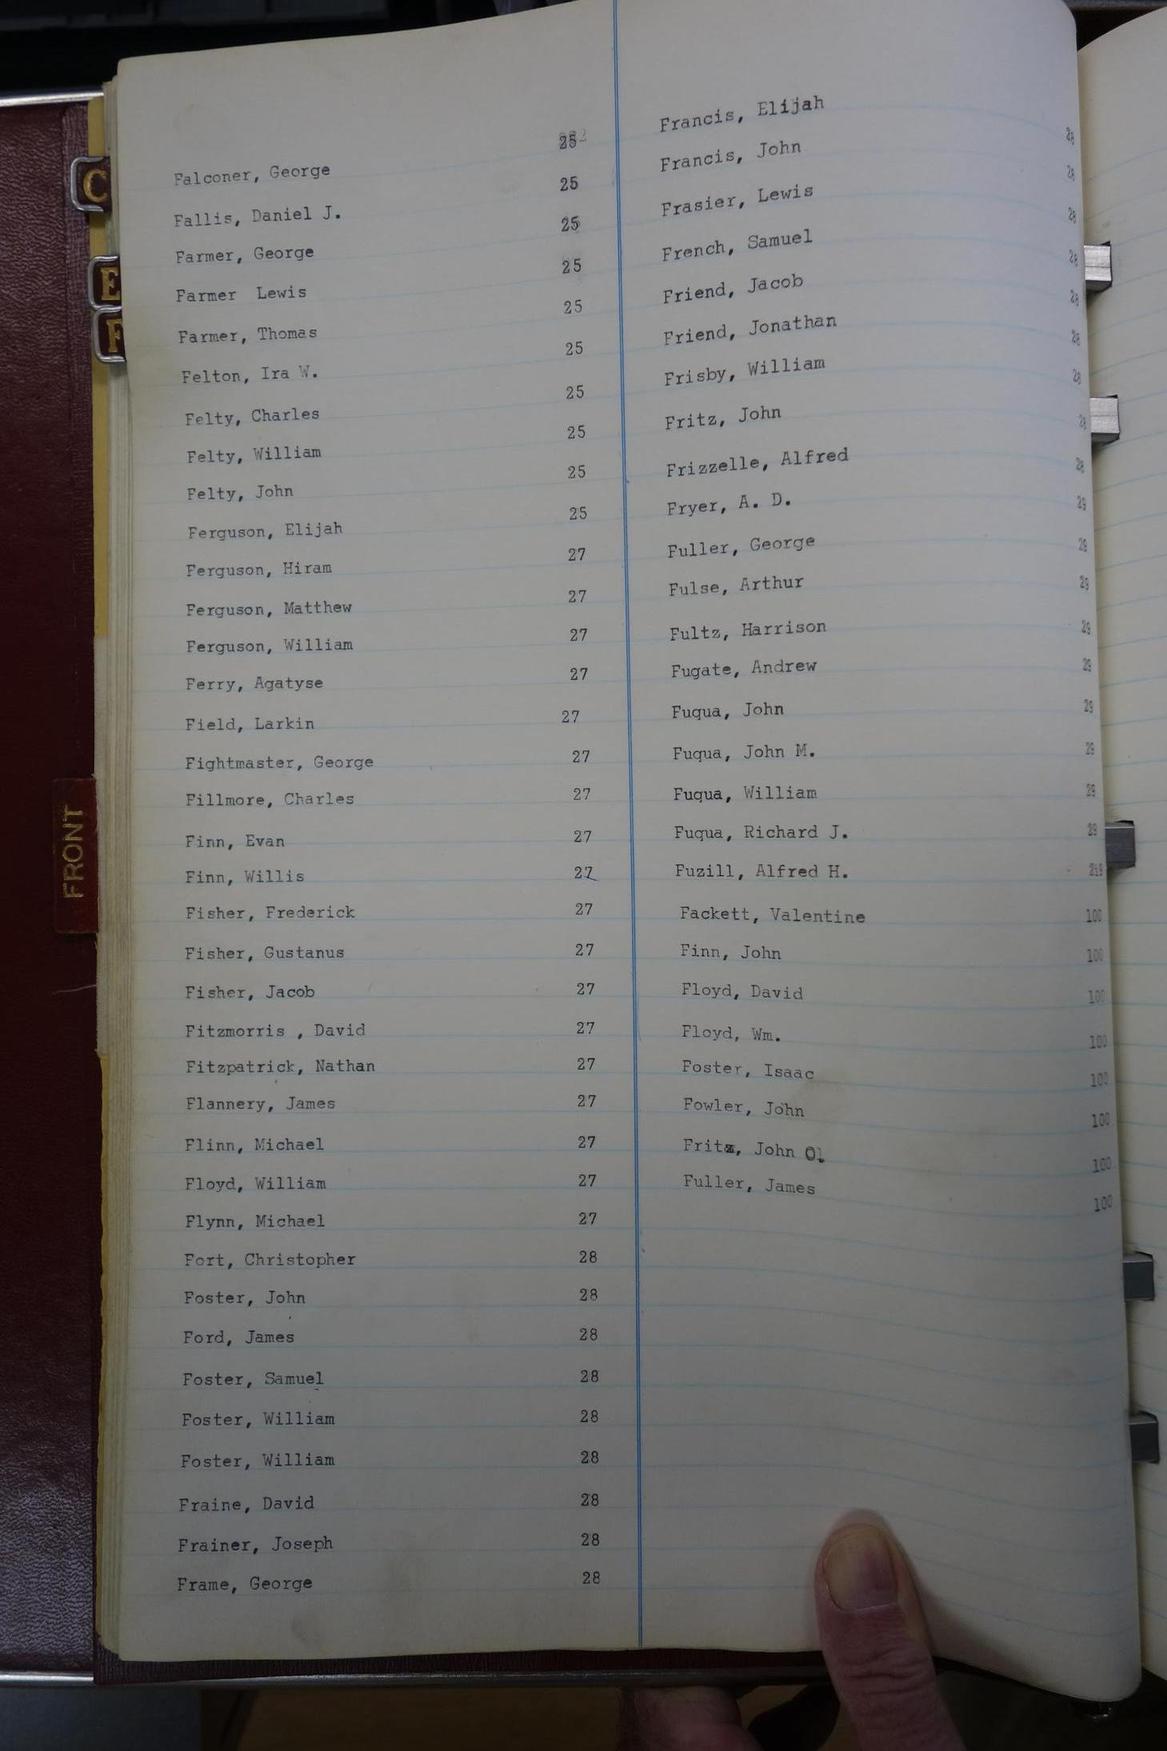 C
E
F
FRONT
Falconer, George 25
Fallis, Daniel J. 25
Farmer, George 25
Farmer Lewis 25
Farmer, Thomas 25
Felton, Ira W. 25
Felty, Charles 25
Felty, William 25
Felty, John 25
Ferguson, Elijah 25
Ferguson, Hiram 27
Ferguson, Matthew 27
Ferguson, William 27
Ferry, Agatyse 27
Field, Larkin 27
Fightmaster, George 27
Fillmore, Charles 27
Finn, Evan 27
Finn, Willis 27
Fisher, Frederick 27
Fisher, Gustanus 27
Fisher, Jacob 27
Fitzmorris , David 27
Fitzpatrick, Nathan 27
Flannery, James 27
Flinn, Michael 27
Floyd, William 27
Flynn, Michael 27
Fort, Christopher 28
Foster, John 28
Ford, James 28
Foster, Samuel 28
Foster, William 28
Foster, William 28
Fraine, David 28
Frainer, Joseph 28
Frame, George 28
Francis, Elijah 28
Francis, John 28
Frasier, Lewis 28
French, Samuel 28
Friend, Jacob 28
Friend, Jonathan 28
Frisby, William 28
Fritz, John 28
Frizzelle, Alfred 28
Fryer, A. D. 29
Fuller, George 29
Fulse, Arthur 29
Fultz, Harrison 29
Fugate, Andrew 29
Fuqua, John 29
Fuqua, John M. 29
Fuqua, William 29
Fuqua, Richard J. 29
Fuzill, Alfred H.
Fackett, Valentine 100
Finn, John 100
Floyd, David 100
Floyd, Wm. 100
Foster, Isaac 100
Fowler, John 100
Fritz, John O. 100
Fuller, James 100